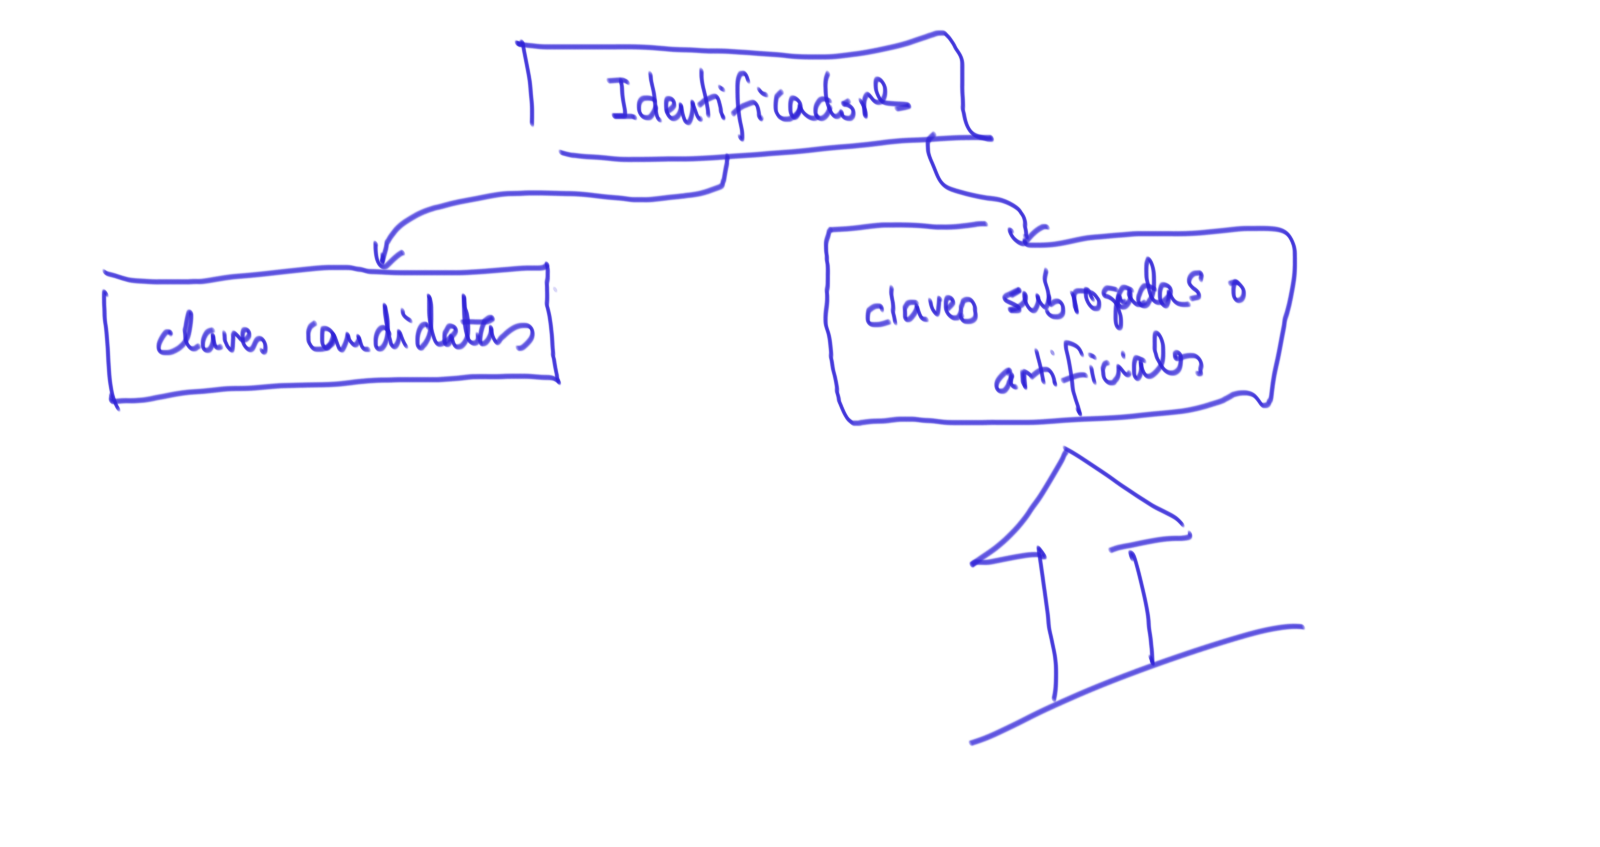 Identificadores
claves candidatas
claves subrogadas o
artificiales